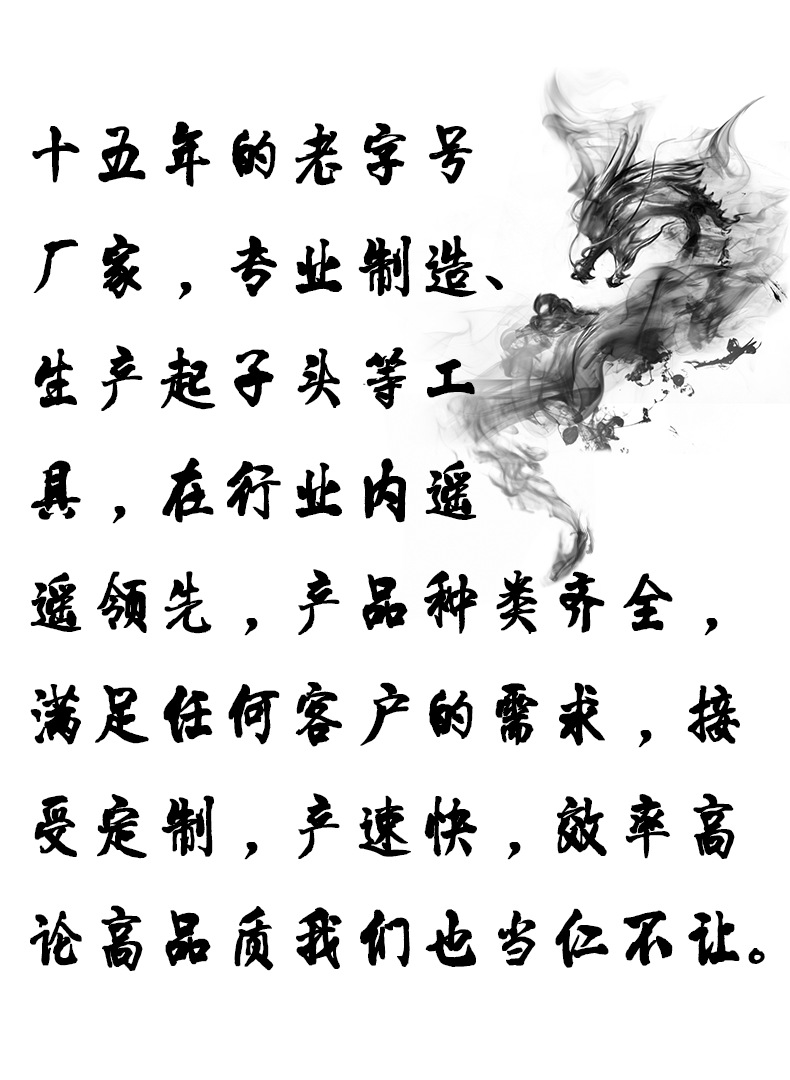 十五年的老字号
厂家，专业制造、
生产起子头等工
具，在行业内遥
遥领先，产品种类齐全，
满足任何客户的需求，接
受定制，产速快，效率高
论高品质我们也当仁不让。